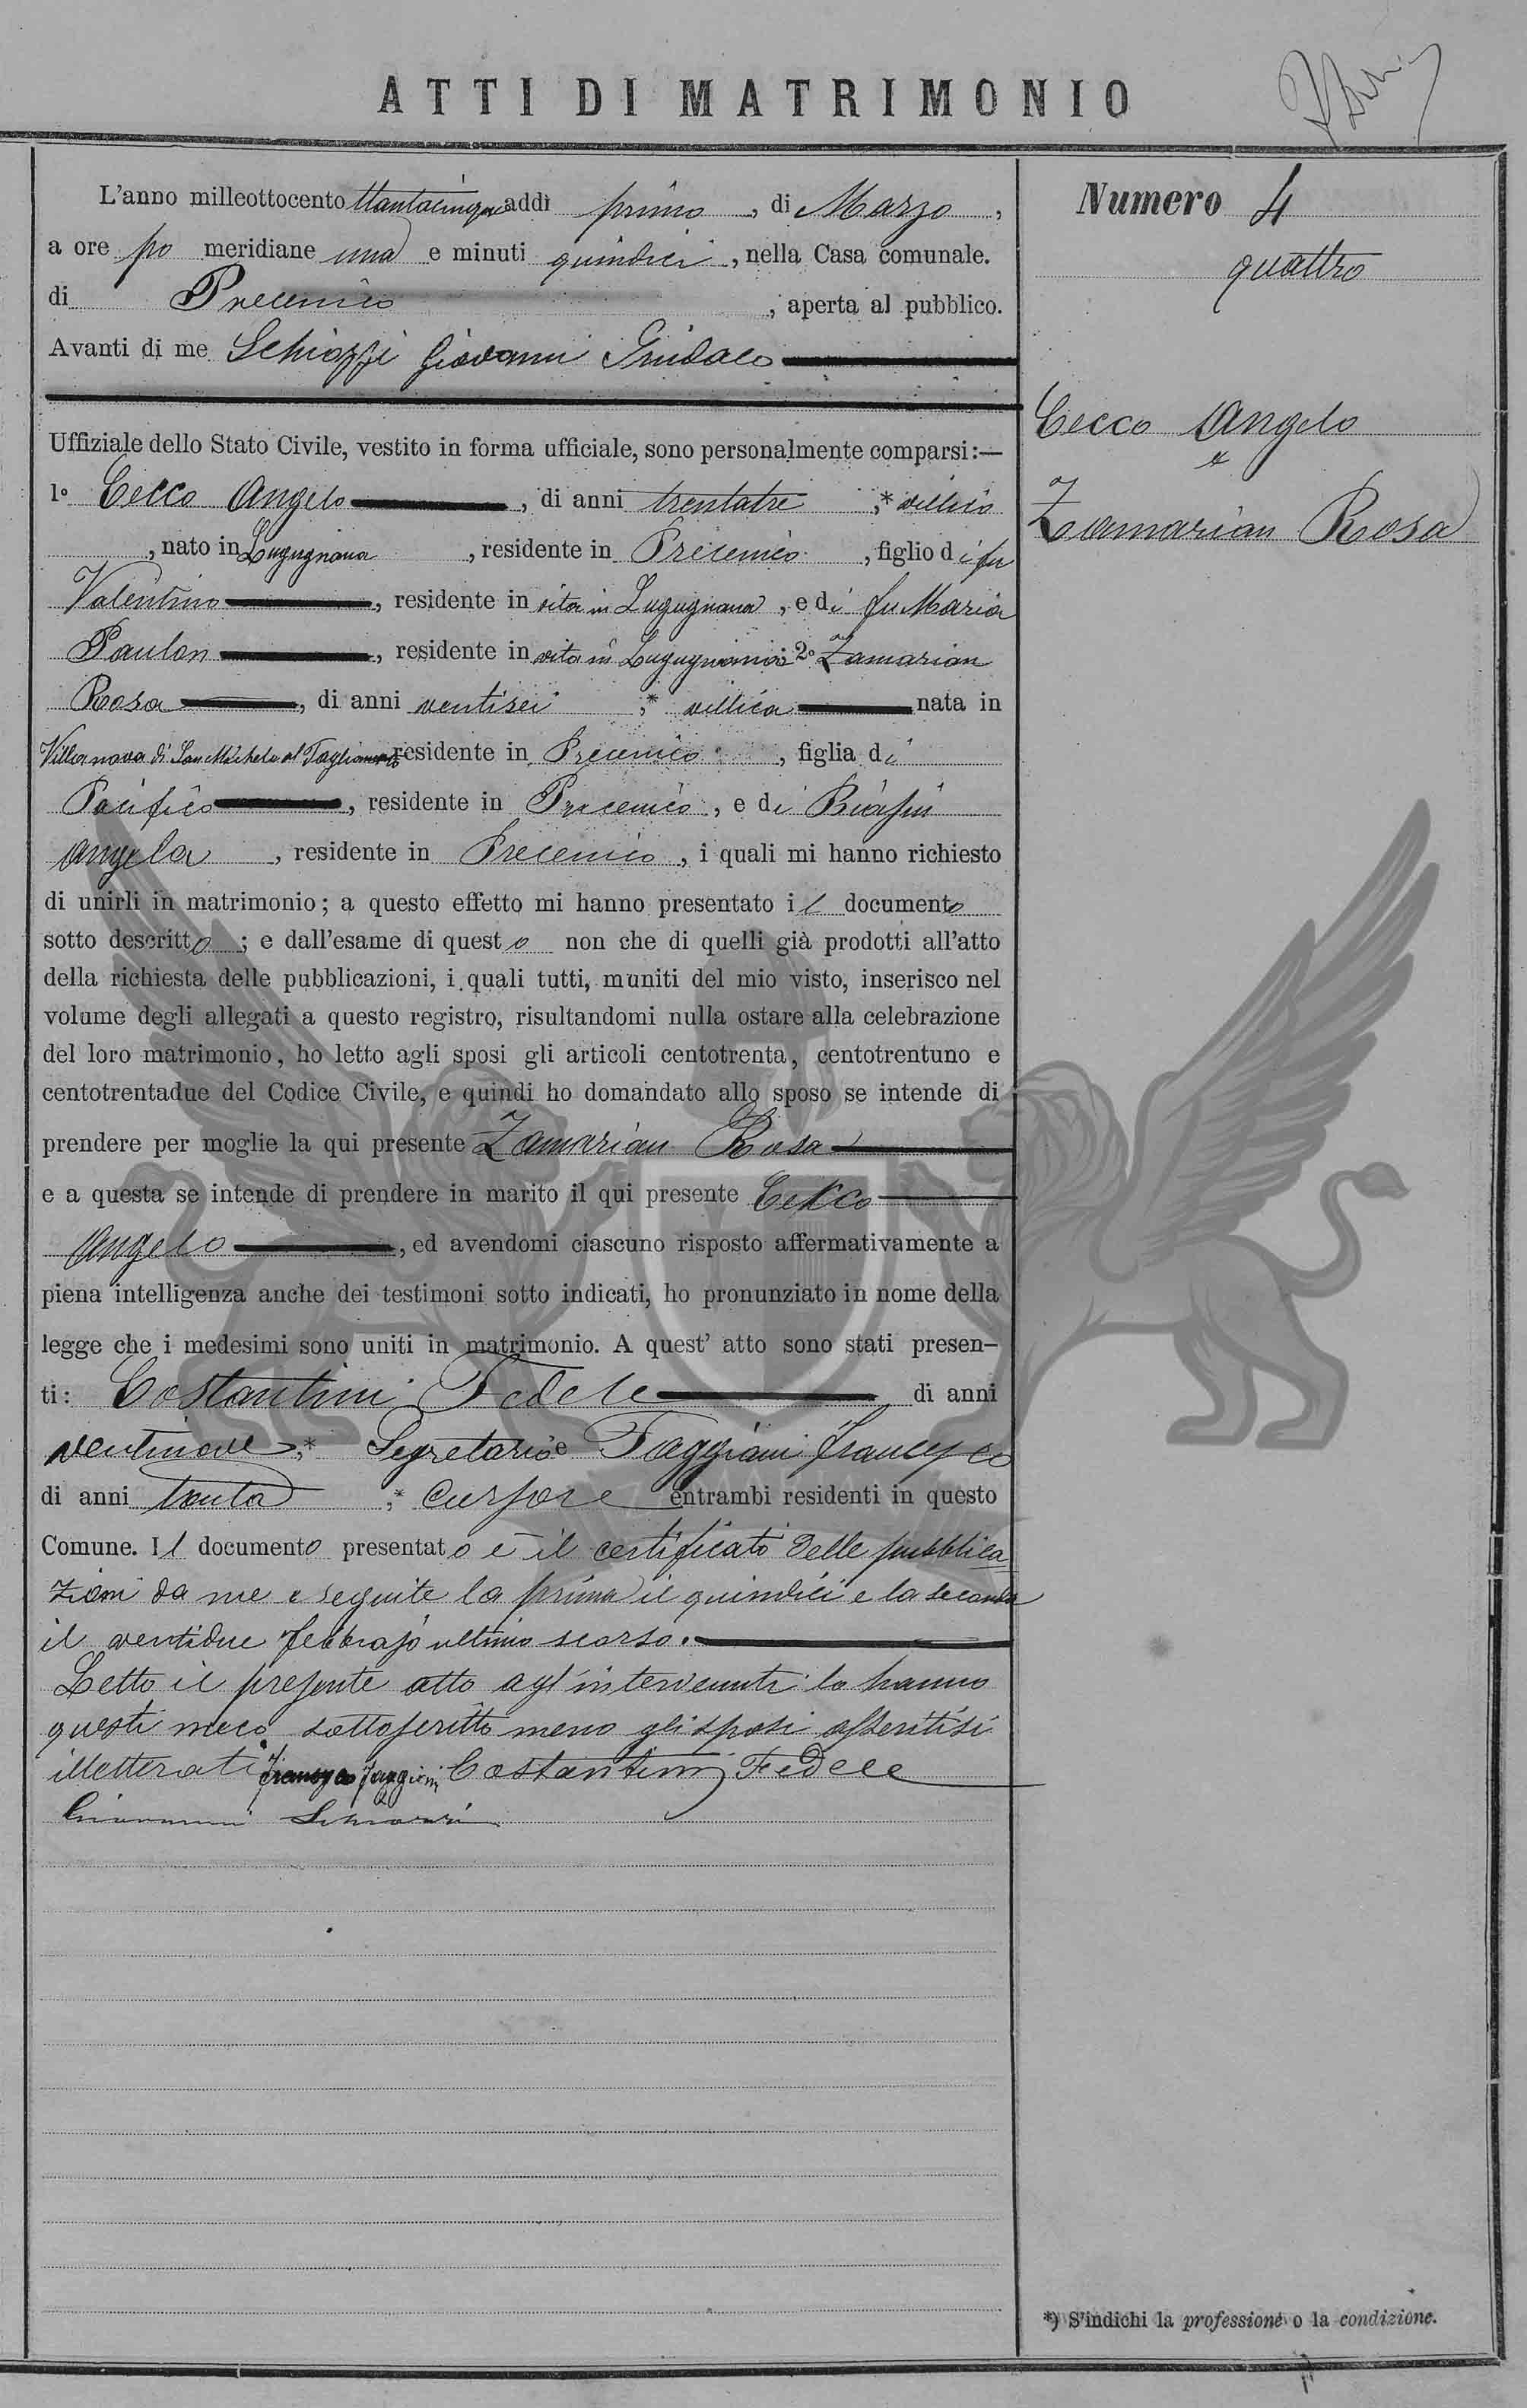 ATTI DI MATRIMONIO
L'anno milleottocento ttantacinque addì primo, di Marzo,
a ore po meridiane una e minuti quindici, nella Casa comunale.
di Precenico, aperta al pubblico.
Avanti di me Schiozzi Giovanni Sindaco
Uffiziale dello Stato Civile, vestito in forma ufficiale, sono personalmente comparsi:—
1º Cecco Angelo, di anni trentatre,* villico
, nato in Lugugnana, residente in Precenico, figlio di fu
Valentino, residente in vita in Lugugnana, e di fu Maria
Paulon, residente in vita in Lugugnana; 2º Zamarian
Rosa, di anni ventisei,* villica nata in
Villanova di San Michele al Tagliamento residente in Precenico, figlia di
Pacifico, residente in Precenico, e di
Angela, residente in Precenico, i quali mi hanno richiesto
di unirli in matrimonio; a questo effetto mi hanno presentato il documento
sotto descritto; e dall'esame di questo non che di quelli già prodotti all'atto
della richiesta delle pubblicazioni, i quali tutti, muniti del mio visto, inserisco nel
volume degli allegati a questo registro, risultandomi nulla ostare alla celebrazione
del loro matrimonio, ho letto agli sposi gli articoli centotrenta, centotrentuno e
centotrentadue del Codice Civile, e quindi ho domandato allo sposo se intende di
prendere per moglie la qui presente Zamarian Rosa
e a questa se intende di prendere in marito il qui presente Cecco
Angelo, ed avendomi ciascuno risposto affermativamente a
piena intelligenza anche dei testimoni sotto indicati, ho pronunziato in nome della
legge che i medesimi sono uniti in matrimonio. A quest' atto sono stati presen-
ti: Costantini Fedele di anni
ventinove,* Segretario e Faggiani Francesco
di anni trenta,* Cursore entrambi residenti in questo
Comune. Il documento presentato è il certificato delle pubblica
zioni da me eseguite la prima il quindici e la seconda
il ventidue febbrajo ultimo scorso.
Letto il presente atto agl'intervenuti lo hanno
questi meco sottoscritto meno gli sposi asseritisi
illetterati. Francesco Faggiani Costantini Fedele
Giovanni Schiozzi
Numero 4
quattro
Cecco Angelo
Zamarian Rosa
*) S'indichi la professione o la condizione.